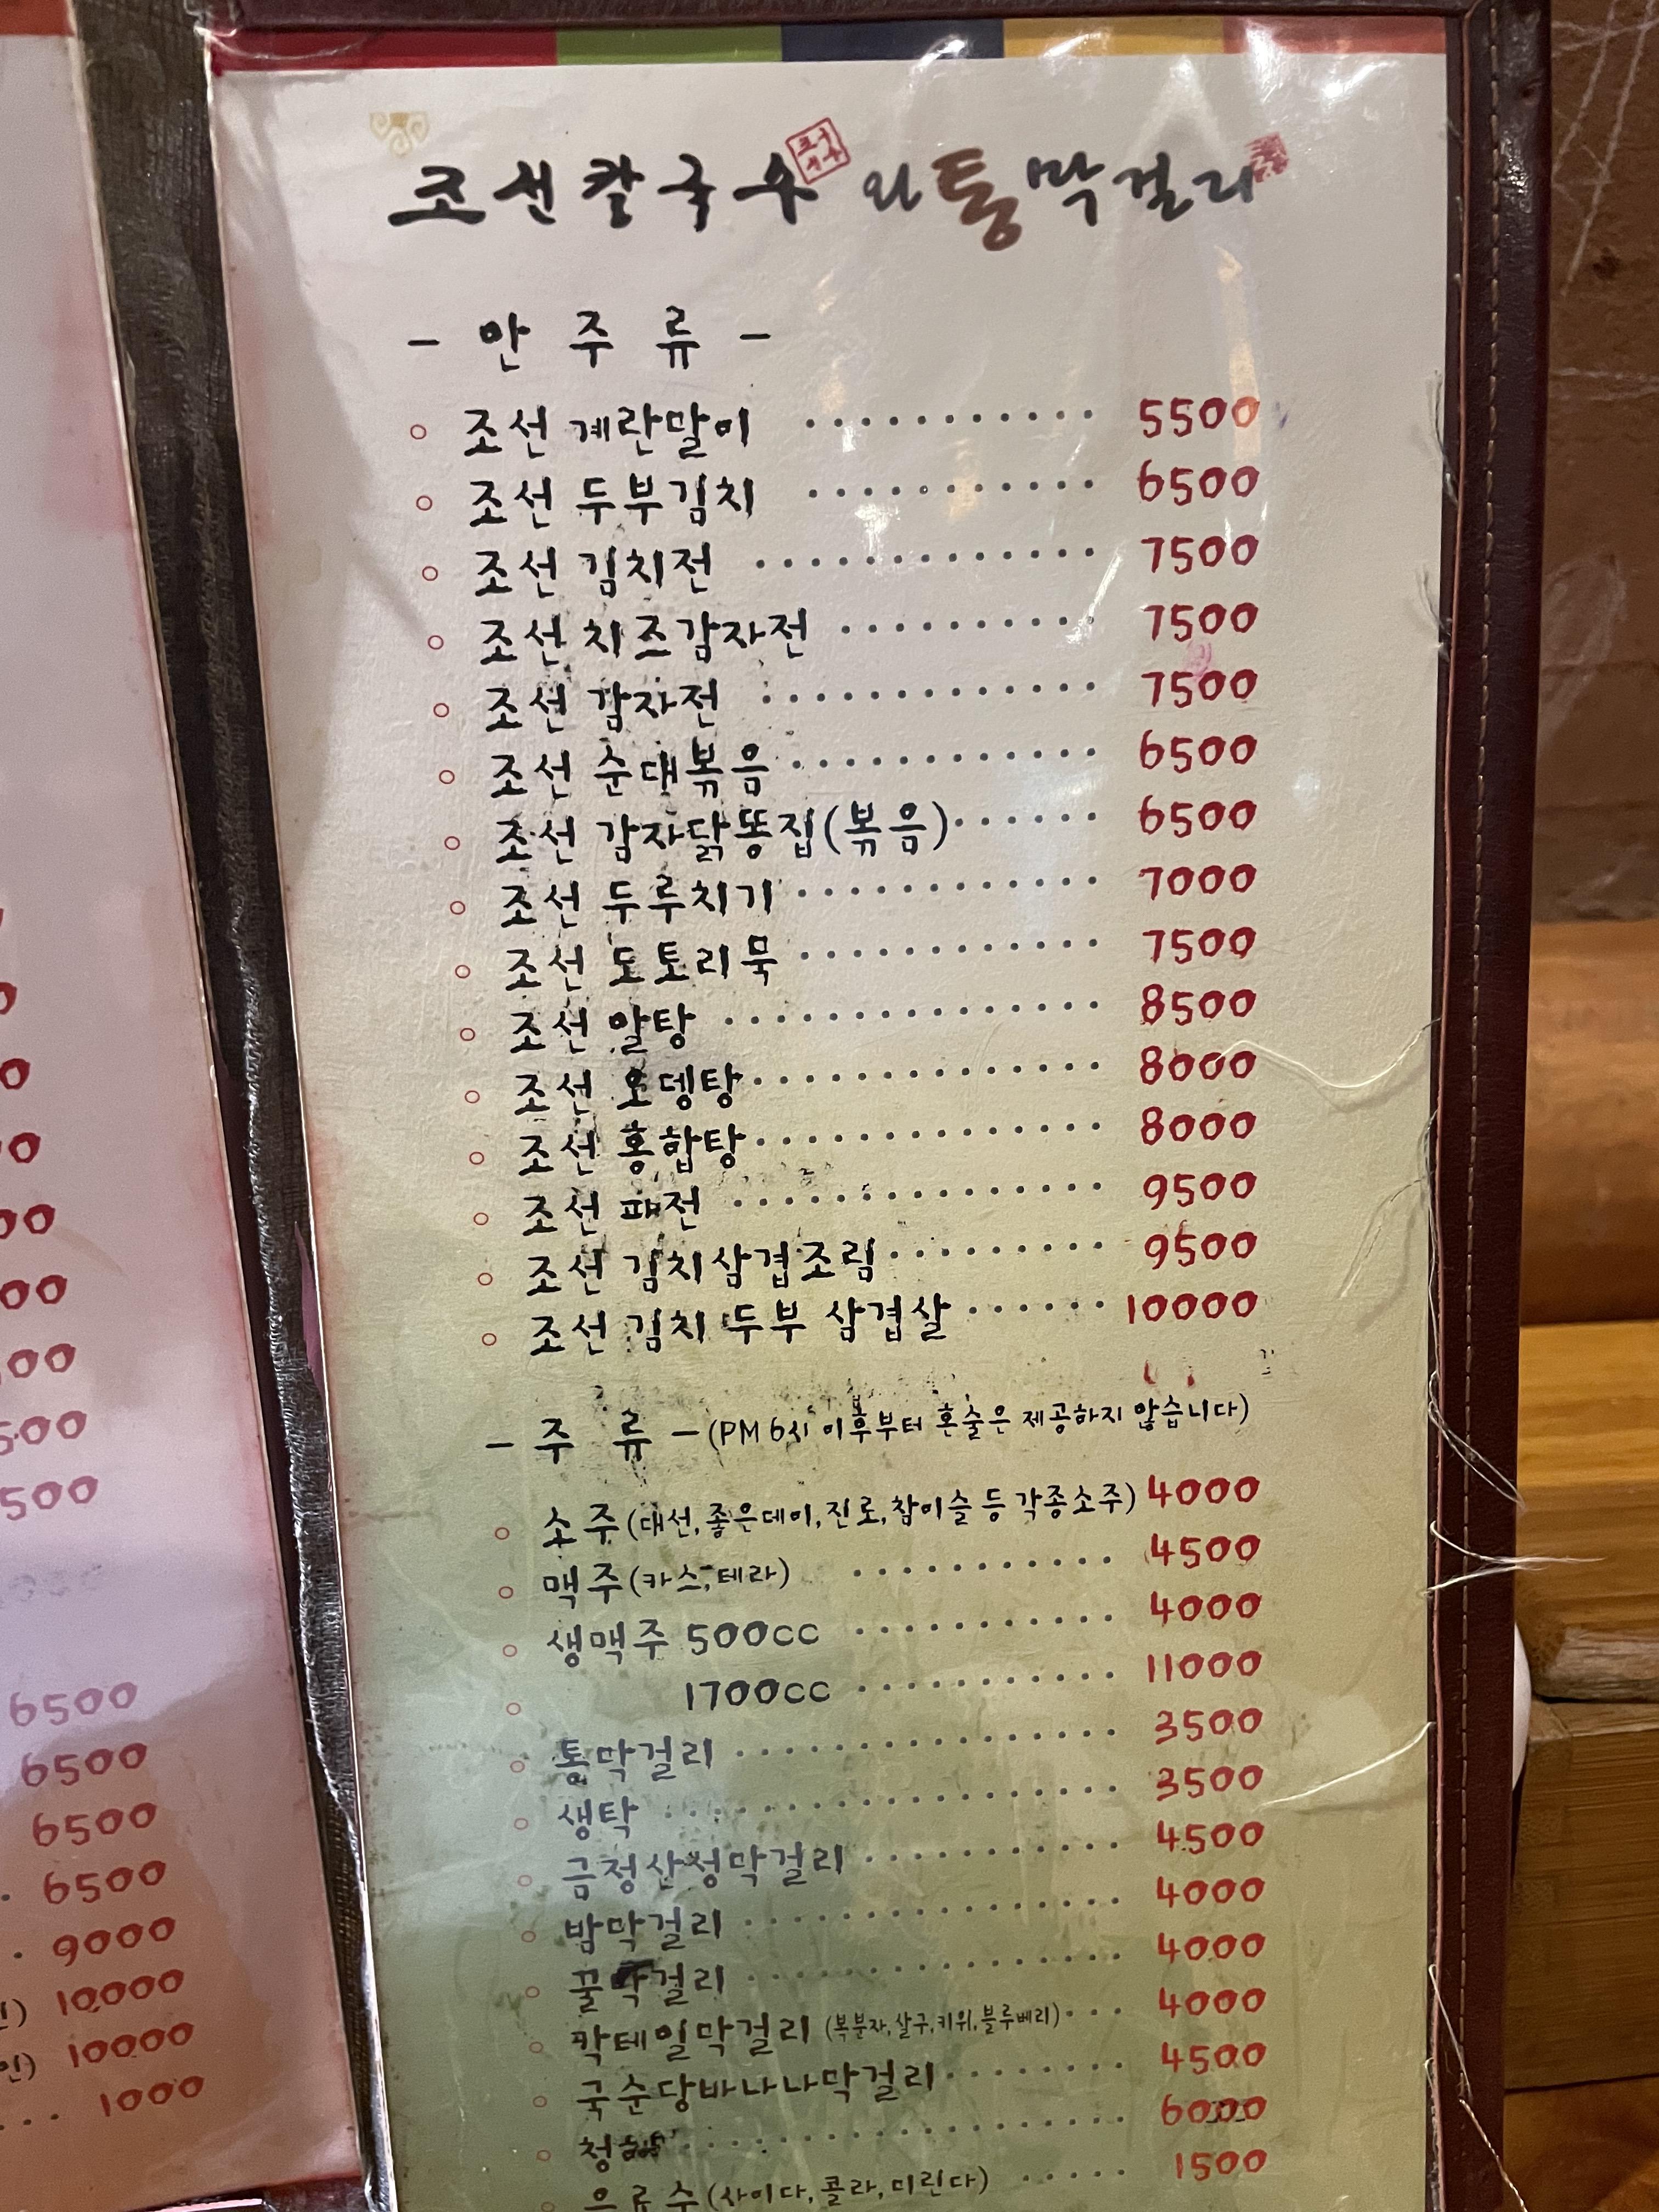 조선칼국수와통막걸리
- 안 주 류 -
조선 계란말이 ........... 5500
조선 두부김치 ........... 6500
조선 김치전 ............. 7500
조선 치즈감자전 .......... 7500
조선 감자전 ............. 7500
조선 순대볶음 ............ 6500
조선 감자닭똥집(볶음) ...... 6500
조선 두루치기 ............ 7000
조선 도토리묵 ............ 7500
조선 알탕 ............... 8500
조선 오뎅탕 .............. 8000
조선 홍합탕 .............. 8000
조선 파전 ............... 9500
조선 김치삼겹조림 ......... 9500
조선 김치 두부 삼겹살 ...... 10000
- 주 류 - (PM 6시 이후부터 혼술은 제공하지 않습니다)
소주(대선,좋은데이,진로,참이슬 등 각종소주) 4000
맥주(카스,테라) ........... 4500
생맥주 500cc ........... 4000
1700cc ........... 11000
통막걸리 ............... 3500
생탁 ................. 3500
금정산성막걸리 ........... 4500
밤막걸리 ............... 4000
꿀막걸리 ............... 4000
칵테일막걸리 (복분자,살구,키위,블루베리) .... 4000
국순당바나나막걸리 ........ 4500
청하 ................. 6000
음료수(사이다,콜라,미린다) ..... 1500
500
500
6500
6500
6500
6500
9000
10000
인) 10000
1000